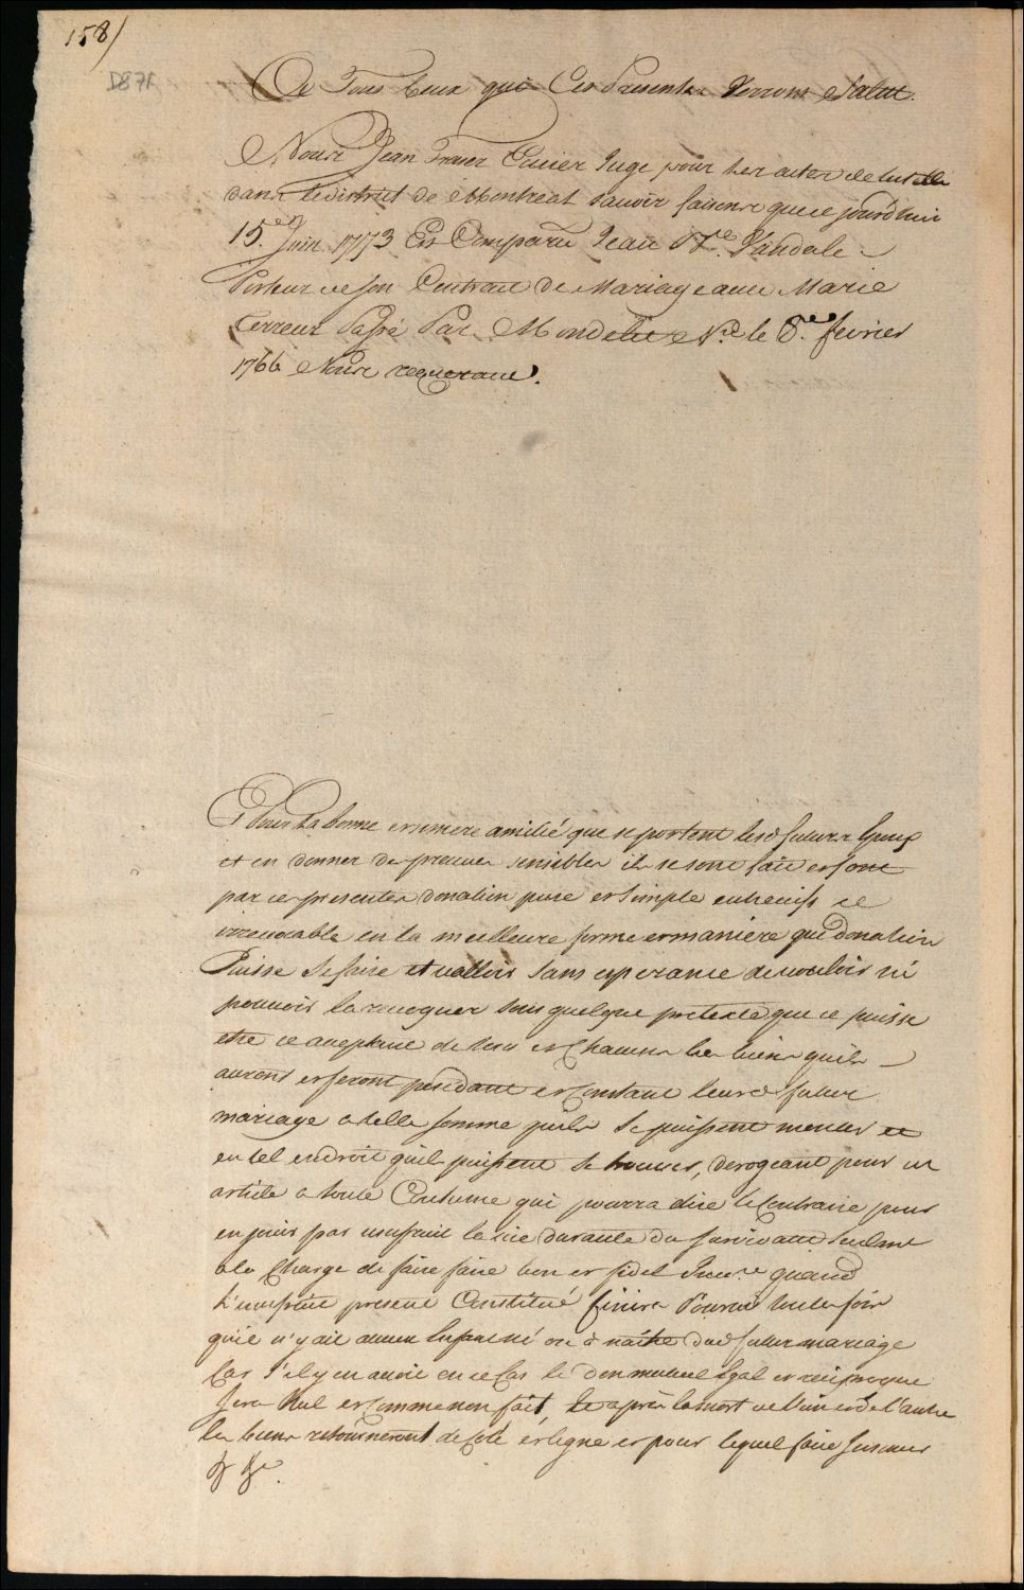 158)
D871
A Tous Ceux qui Ces Presentes Verront Salut.
Nous Jean Fraser Ecuier Juge pour les actes de tutelle
dans le district de Montreal Scavoir faisons que ce jourdhui
15.en Juin 1773 Est Comparu Jean Bte. Vandale
Porteur de son Contract de Mariage avec Marie
Terreur Passé Par Mondelet Nre. le 8.ee fevrier
1766 Nous requerant.
Pour la bonne et sincere amitié que se portent lesd. futurs Epoux
et en donner des preuves sensibles ils se sont fait et font
par ces presentes donation pure et simple entrevifs et
irrevocable en la meilleure forme et maniere que donation
Puisse Se faire et valloir Sans esperance de vouloir ni
pouvoir la revoquer sous quelque pretexte que ce puisse
etre ce acceptant de tous et Chacuns les biens quils
auront et feront pendant et Constant leurd. futur
mariage a telle somme quils Se puissent monter et
en tel endroit quils puissent Se trouver, derogeant pour cet
article a toute Coutume qui pourra dire le Contraire pour
en jouir par usufruit la vie durante du survivant seulmt
a la Charge de faire faire bon et fidel Inven.re quand
l'usufruit present Constitué finira Pourvu toute fois
quil n'y ait aucun Enfant né ou à naitre dud. futur mariage
Car S'il y en avoit en ce Cas le don mutuel Egal et reciproque
Sera Nul et Comme non fait, et après la mort de l'un et de l'autre
les biens retourneront de Coté et ligne et pour lequel faire Insinuer
& &c.